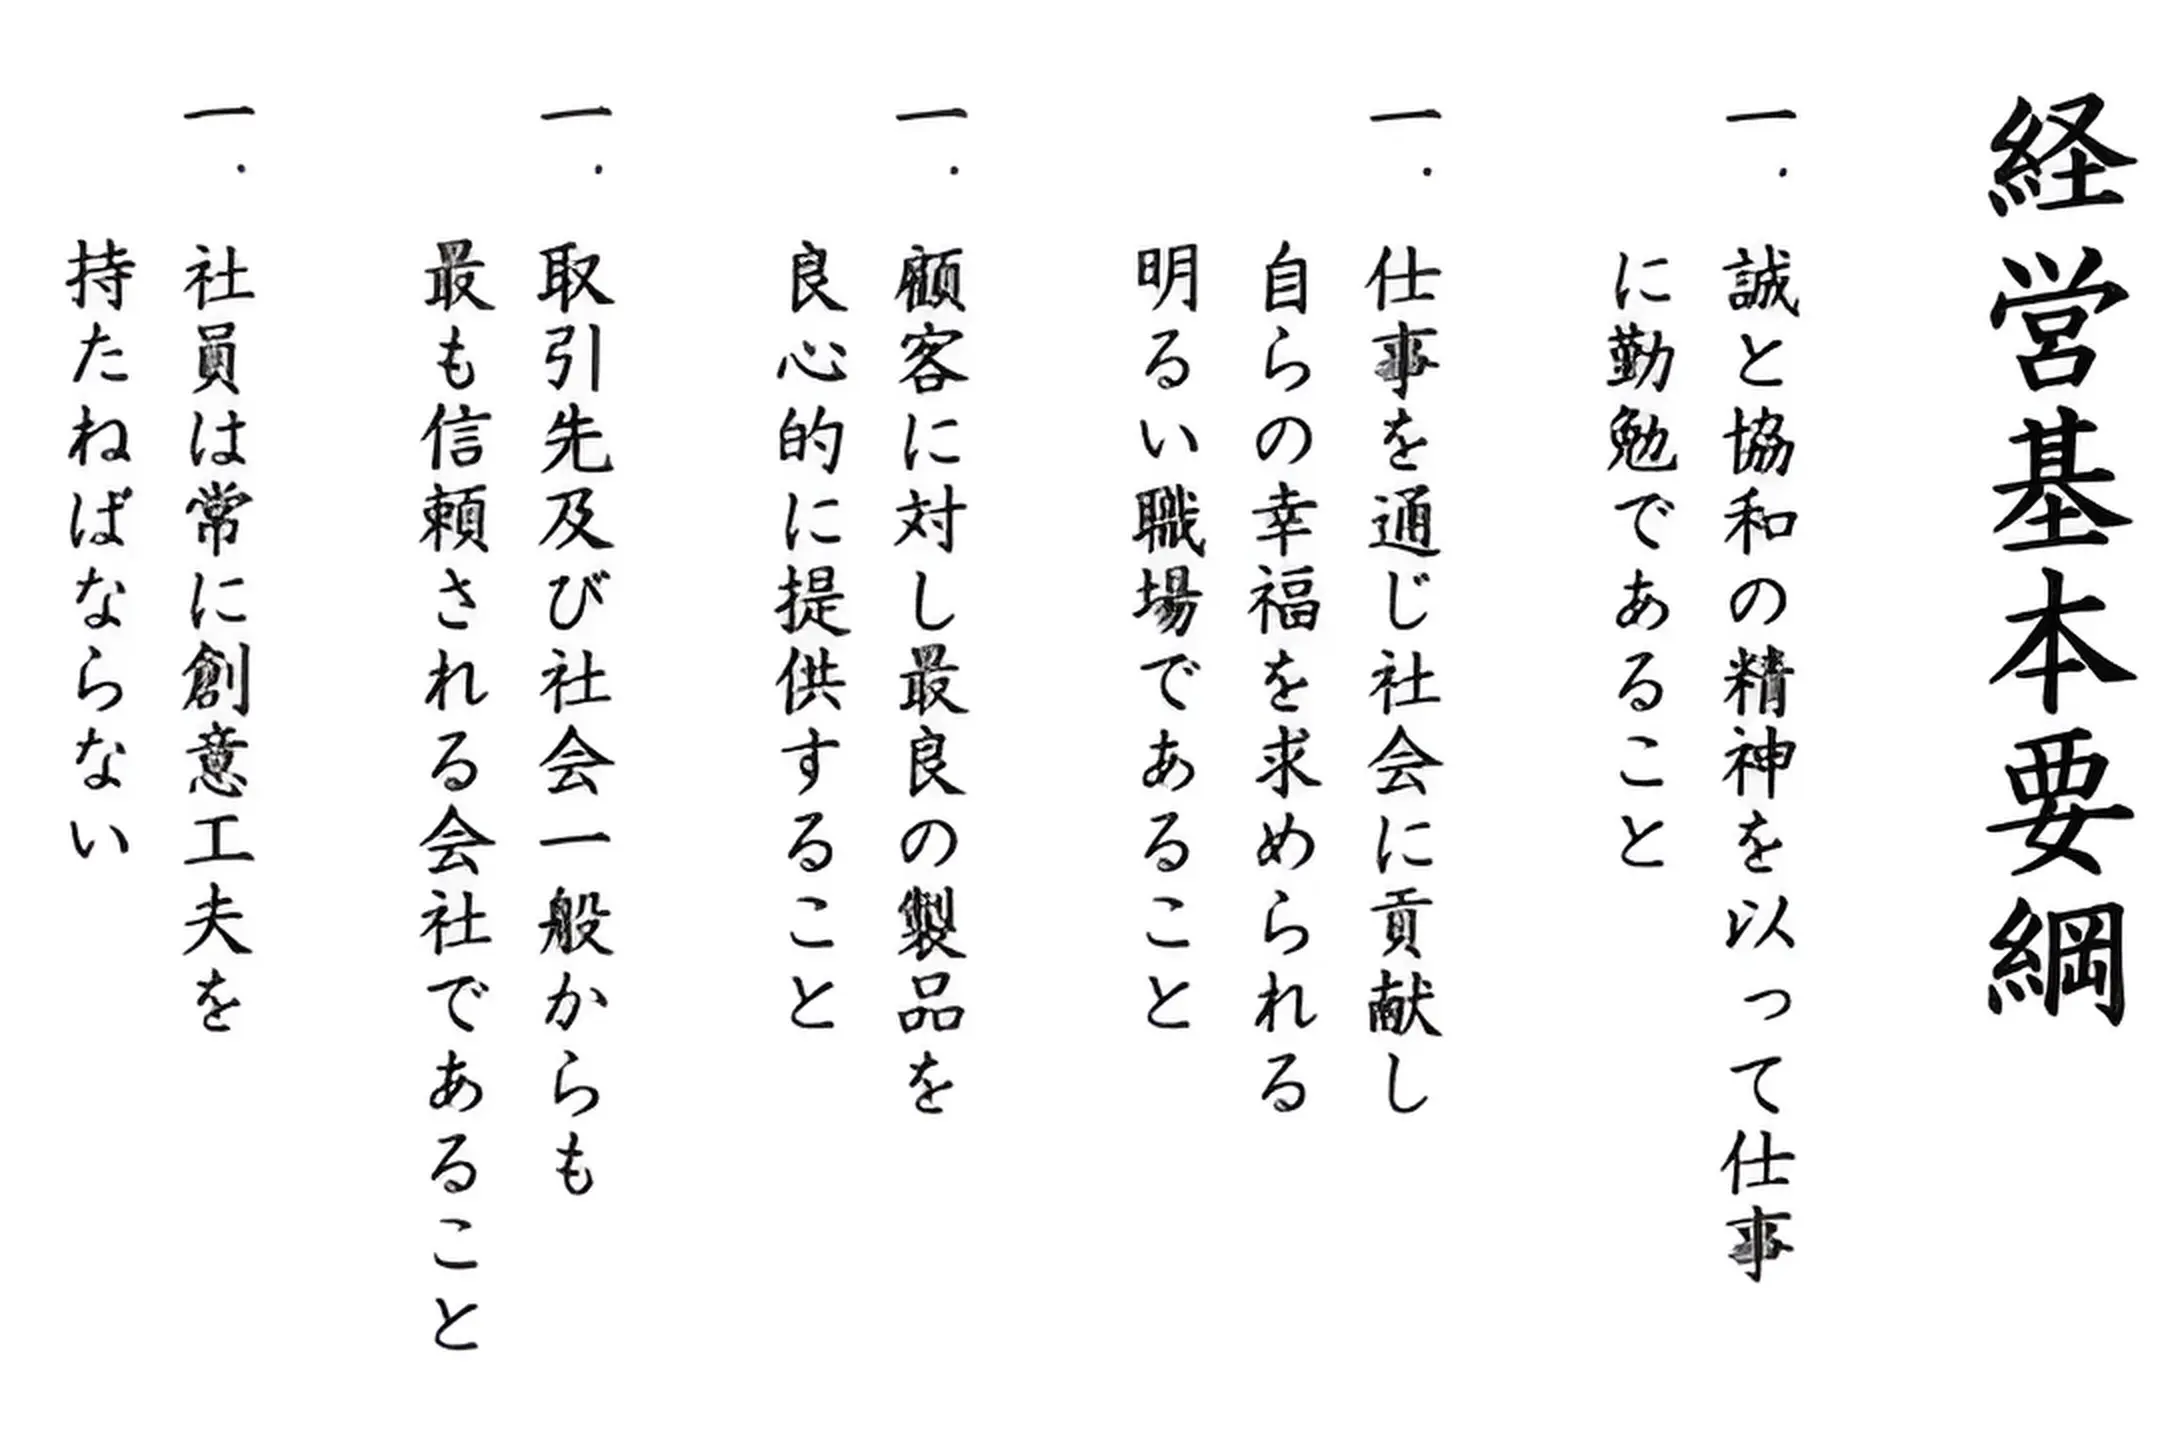 経営基本要綱
一.誠と協和の精神を以って仕事
に勤勉であること
一.仕事を通じ社会に貢献し
自らの幸福を求められる
明るい職場であること
一.顧客に対し最良の製品を
良心的に提供すること
一.取引先及び社会一般からも
最も信頼される会社であること
一.社員は常に創意工夫を
持たねばならない